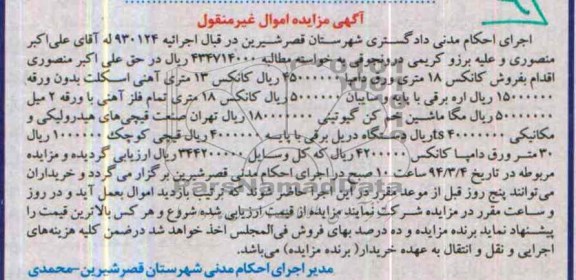 آگهی مزایده اموال غیرمنقول
اجرای احکام مدنی دادگستری شهرستان قصرشیرین در قبال اجرائیه ۹۳۰۱۲۴ له آقای علی‌اکبر
منصوری و علیه برزو کریمی ورونجوقی به خواسته مطالبه ۴۳۴۷۱۴۰۰۰ ریال در حق علی اکبر منصوری
اقدام بفروش کانکس ۱۸ متری ورق دامپا ۴۵۰۰۰۰۰۰ ریال کانکس ۱۳ متری آهنی اسکلت بدون ورقه
۱۵۰۰۰۰۰۰ ریال اره برقی با پایه و سایبان ۵۰۰۰۰۰۰ ریال کانکس ۱۸ متری تمام فلز آهنی با ورقه ۲ میل
۵۰۰۰۰۰۰۰ ریال مگا ماشین خم کن گیوتینی ۱۸۰۰۰۰۰۰۰ ریال تهران صنعت قیچی‌های هیدرولیکی و
مکانیکی ۴۰۰۰۰۰۰۰ts ریال دستگاه دریل برقی با پایه ۴۰۰۰۰۰۰ ریال قیچی کوچک ۱۰۰۰۰۰۰ ریال
۳۰ متر ورق دامپا کانکس ۴۲۰۰۰۰۰ ریال که کل وسایل ۳۴۴۲۰۰۰۰۰ ریال ارزیابی گردیده و مزایده
مربوطه در تاریخ ۹۴/۳/۴ ساعت ۱۰ صبح در اجرای احکام مدنی قصرشیرین برگزار می‌گردد و خریداران
می‌توانند پنج روز قبل از موعد مقرر در این اجرا حاضر شوند تا ترتیب بازدید اموال بعمل آید و در روز
و ساعت مقرر در مزایده شرکت نمایند مزایده از قیمت ارزیابی شده شروع و هر کس بالاترین قیمت را
پیشنهاد نماید برنده مزایده و ده درصد بهای فروش فی‌المجلس اخذ خواهد شد درضمن کلیه هزینه‌های
اجرایی و نقل و انتقال به عهده خریدار( برنده مزایده) می‌باشد.
مدیر اجرای احکام مدنی شهرستان قصرشیرین-محمدی